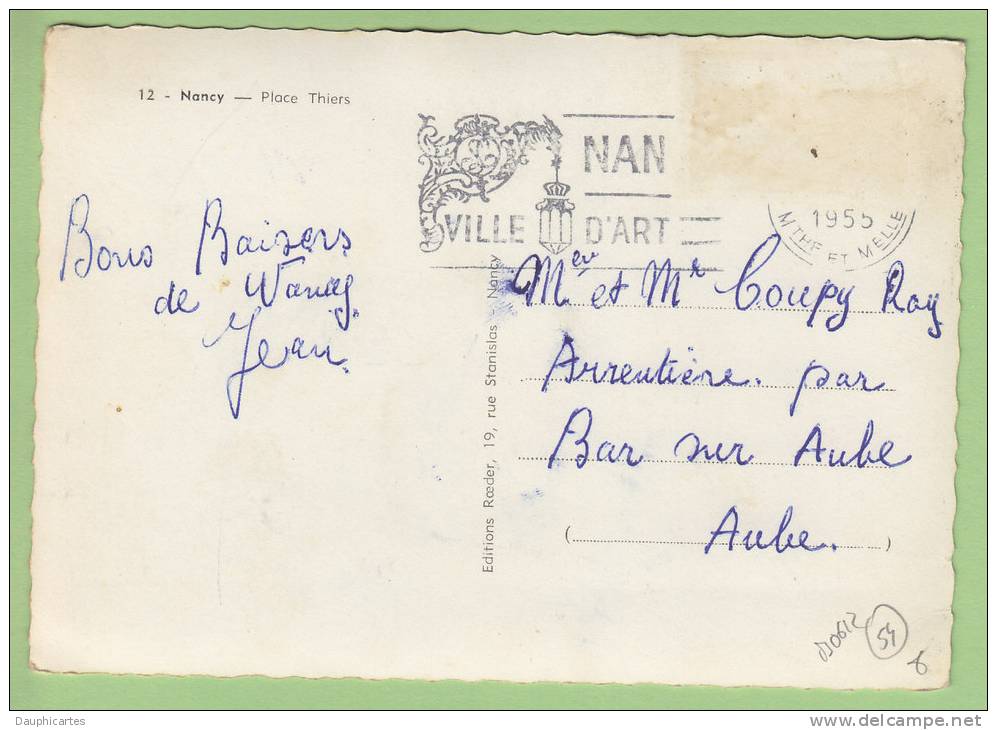 12 - Nancy — Place Thiers
NAN
VILLE D'ART
1955
MTHE ET MELLE
Bons Baisers
de Nancy
Jean
Mer et Mr Coupy Ray
Arrentière. par
Bar sur Aube
Aube.
Editions Rœder, 19, rue Stanislas - Nancy
54
Dauphicartes
delcampe.net